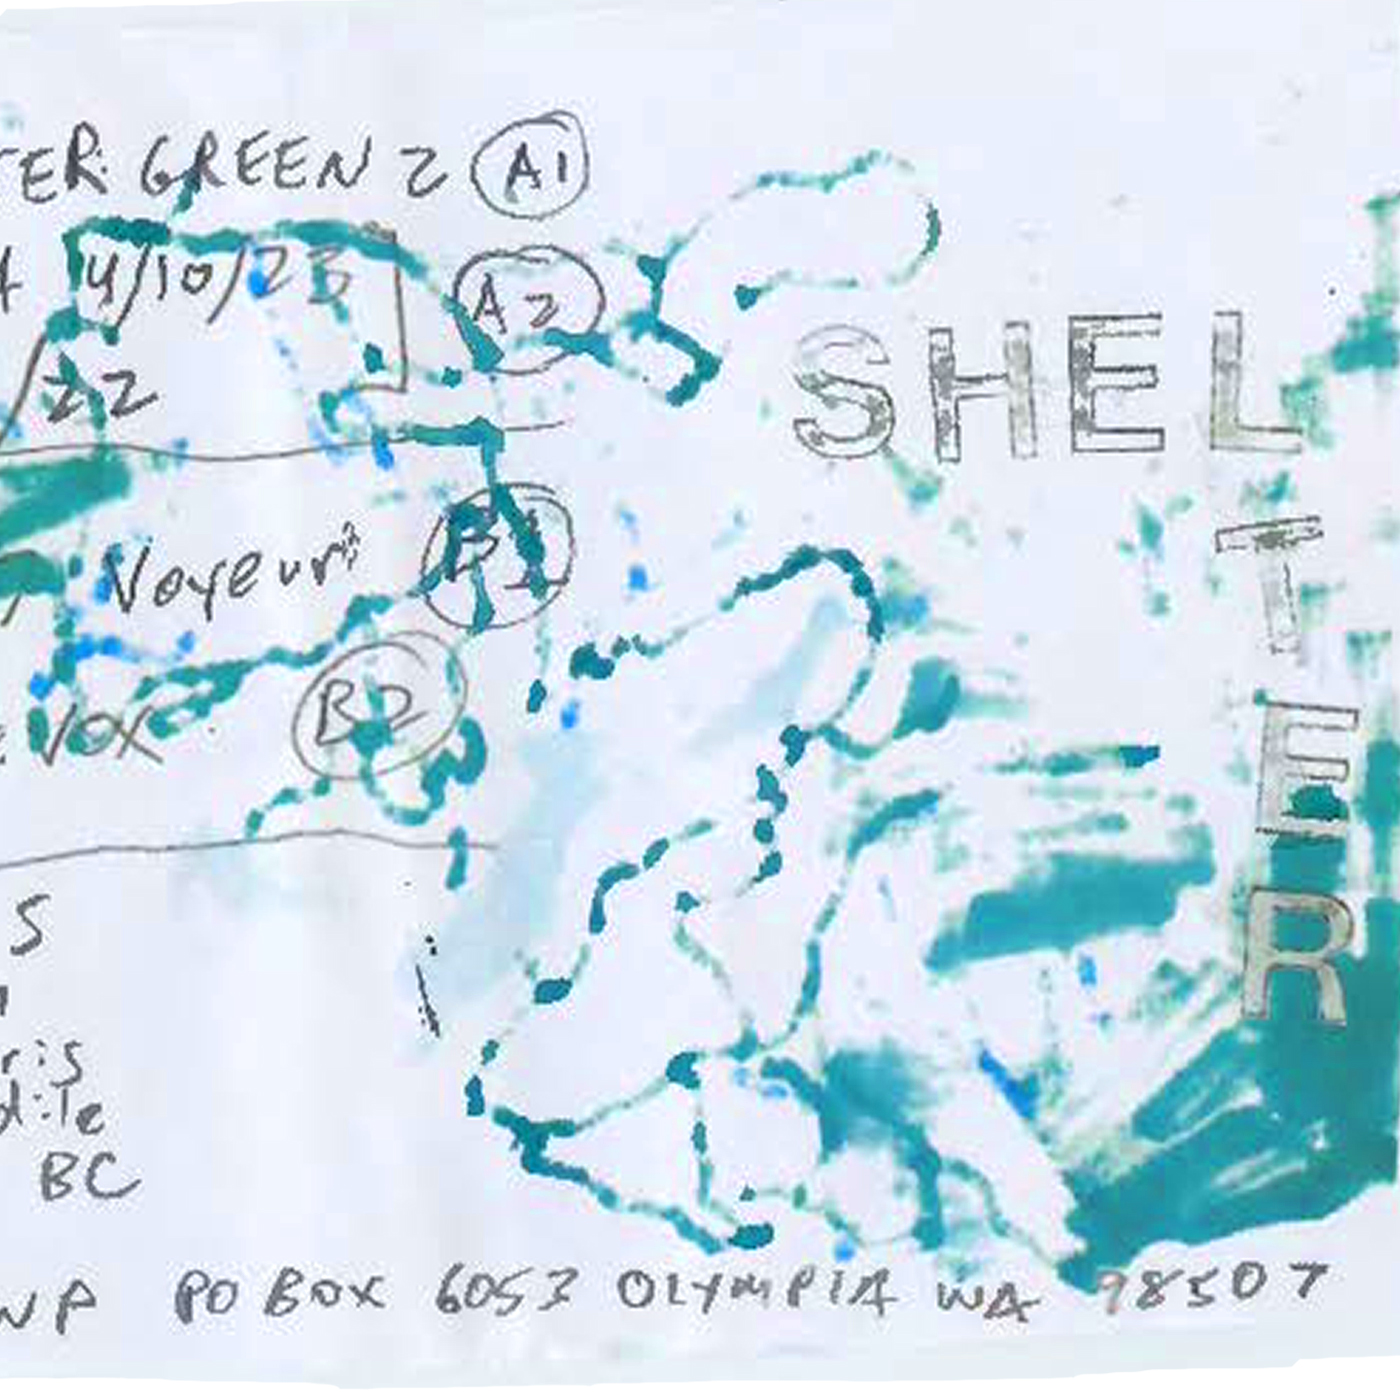 TER GREEN 2 A1
4/10/23 A2
/22
SHEL
T
E
R
Voyeur B1
VOX B2
S
ris
dile
BC
WP PO BOX 6053 OLYMPIA WA 98507